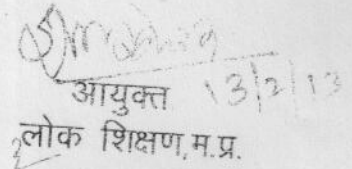 आयुक्त 13/2/13
लोक शिक्षण, म.प्र.